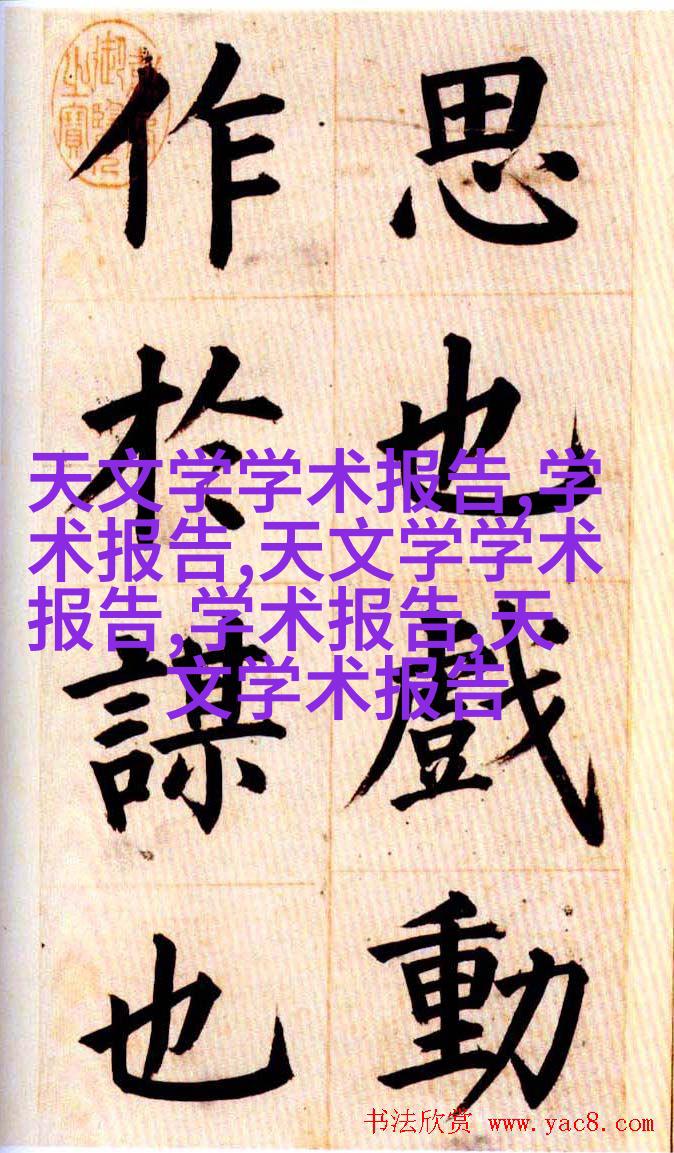 思也戲動
作於謀也
天文学学术报告,学
术报告,天文学学术
报告,学术报告,天
文学术报告
书法欣赏 www.yac8.com